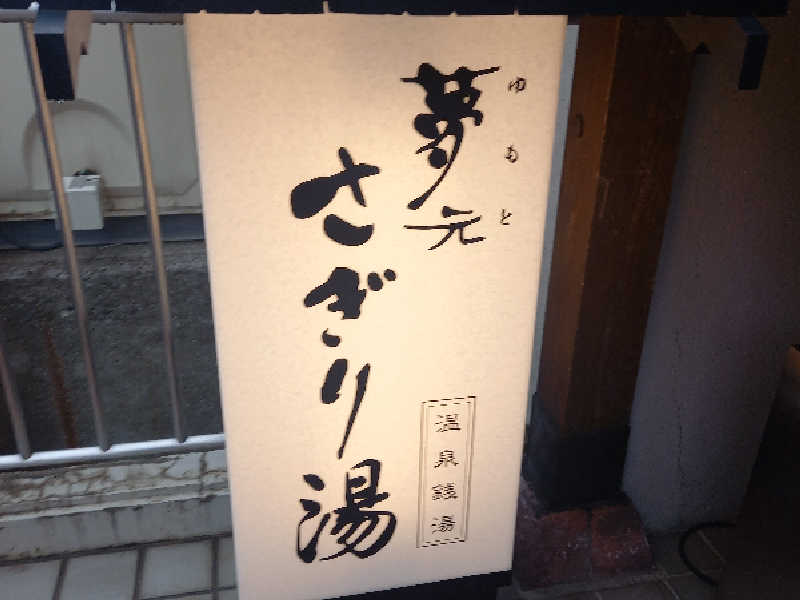 夢元
ゆもと
さぎり湯
温泉銭湯